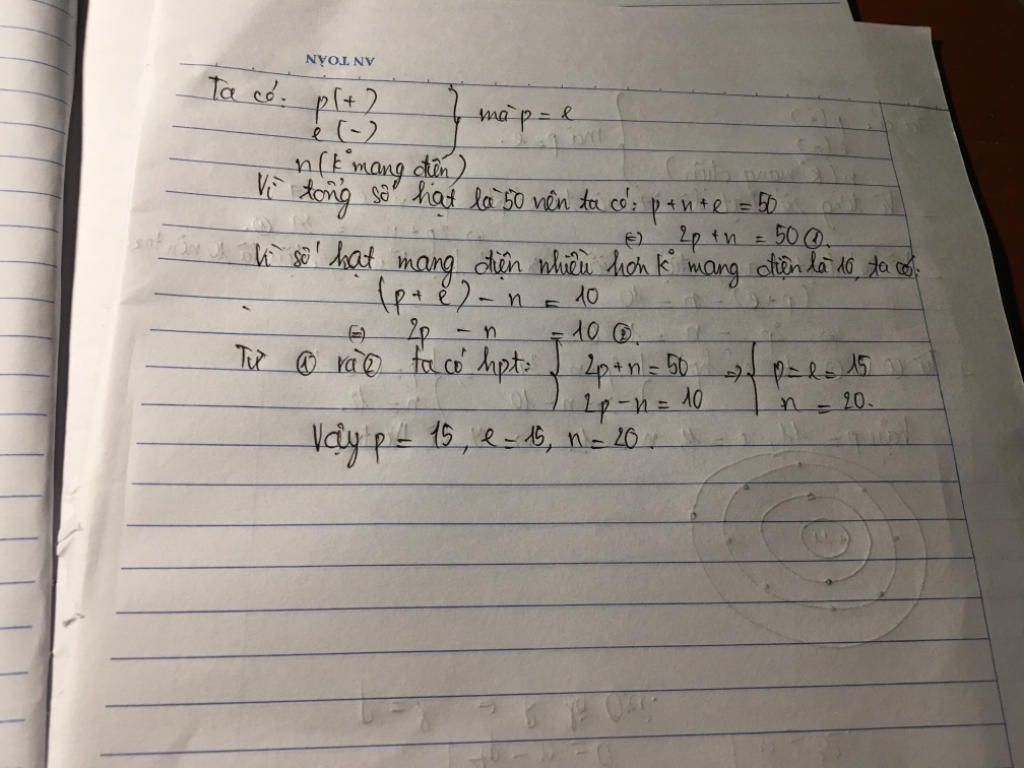 AN TOÀN
Ta có: p(+)
e (-) } mà p = e
n (k° mang điện)
Vì tổng số hạt là 50 nên ta có: p+n+e = 50
⇔ 2p+n = 50 ①.
Vì số hạt mang điện nhiều hơn k° mang điện là 10, ta có:
(p+e) - n = 10
⇔ 2p - n = 10 ②.
Từ ① và ② ta có hpt: { 2p+n = 50 ⇒ { p = e = 15
2p-n = 10 n = 20.
Vậy p = 15, e = 15, n = 20.